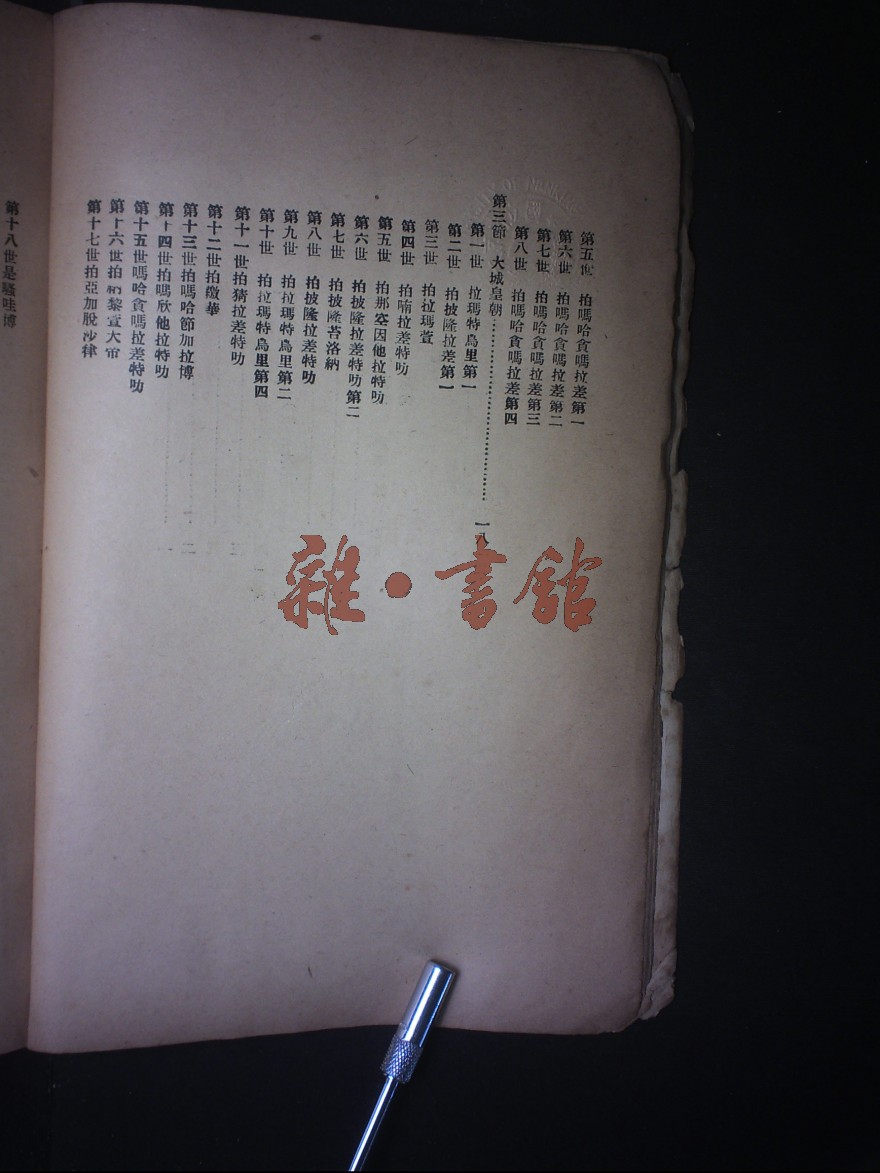 第五世 拍嗎哈貪嗎拉差第一
第六世 拍嗎哈貪嗎拉差第二
第七世 拍嗎哈貪嗎拉差第三
第八世 拍嗎哈貪嗎拉差第四
第三節 大城皇朝…………………………一八
第一世 拉瑪特烏里第一
第二世 拍披隆拉差第一
第三世 拍拉瑪萱
第四世 拍喃拉差特叻
第五世 拍那空因他拉特叻
第六世 拍披隆拉差特叻第二
第七世 拍披隆苔洛納
第八世 拍披隆拉差特叻
第九世 拍拉瑪特烏里第二
第十世 拍拉瑪特烏里第四
第十一世拍猜拉差特叻
第十二世拍繳華
第十三世拍嗎哈節加拉博
第十四世拍嗎欣他拉特叻
第十五世嗎哈貪嗎拉差特叻
第十六世拍納黎萱大帝
第十七世拍亞加脫沙律
第十八世是騷哇博
雜·書館